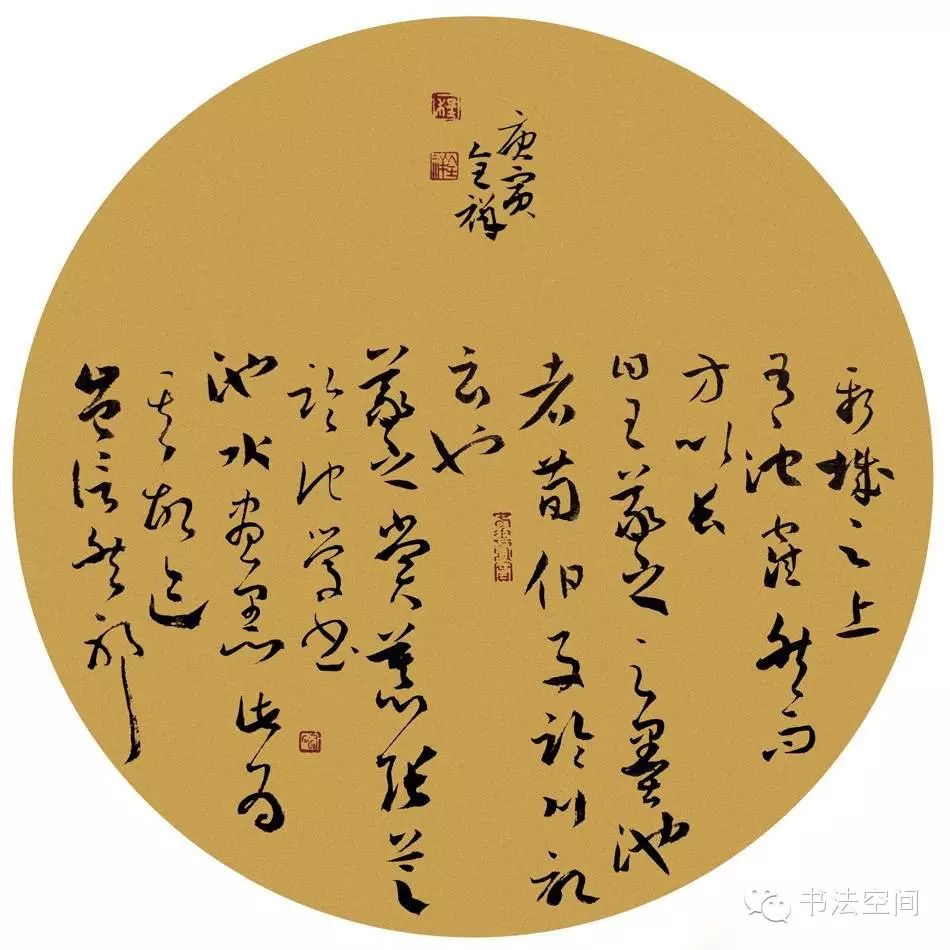 新城之上
有池窪然而
方以長
曰王羲之之墨池
者荀伯子臨川記
云也
羲之嘗慕張芝
臨池學書
池水盡黑此為
其故迹
豈信然邪
庚寅
全祥
书法空间